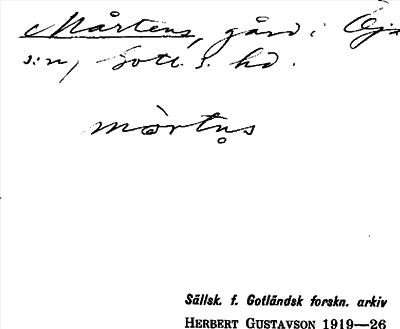 Mårtens, gård i Öja
s:n, Gotl. S. hd.
mårtn̥s
Sällsk. f. Gotländsk forskn. arkiv
HERBERT GUSTAVSON 1919—26